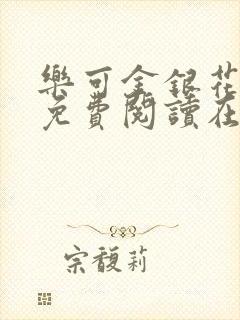 樂可金銀花
免費閱讀在
宗馥莉